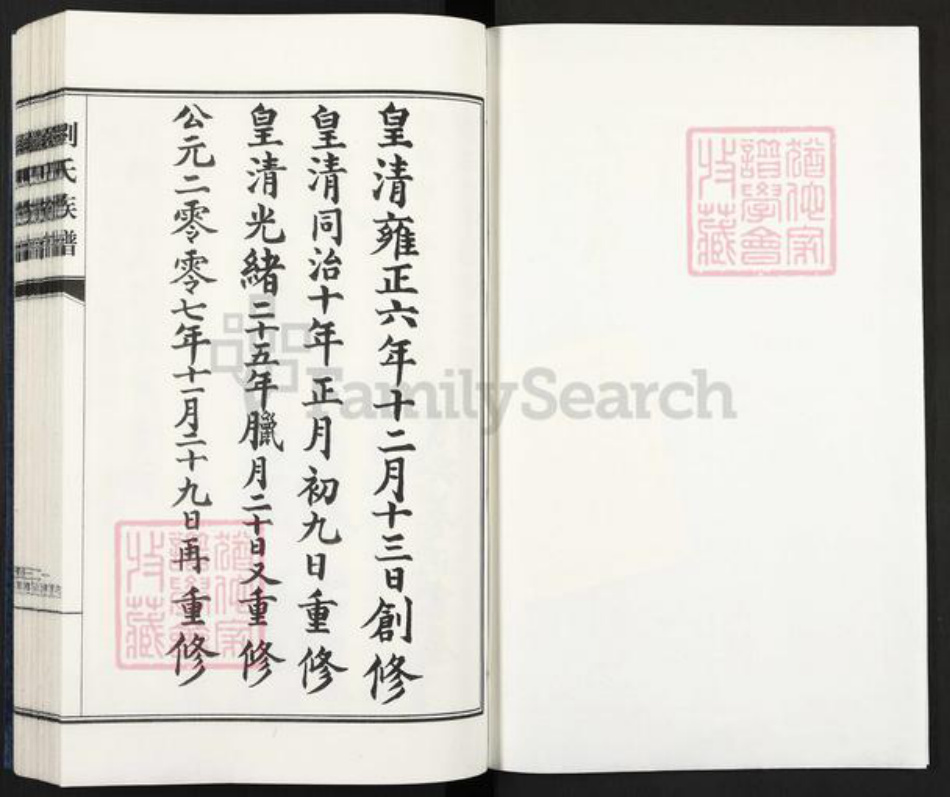 皇清雍正六年十二月十三日創修
皇清同治十年正月初九日重修
皇清光緒二十五年臘月二十日又重修
公元二零零七年十一月二十九日再重修
劉氏族譜
猶他家
譜學會
收藏
FamilySearch
猶他家
譜學會
收藏